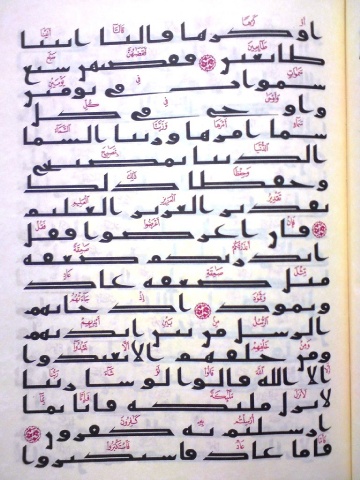 او كرها قالتا اتينا
طائعين فقضيهن سبع
سموات في يومين
واوحى في كل
سما امرها وزينا السما
الدنيا بمصبيح
وحفظا ذلك
تقدير العزيز العليم
فان اعرضوا فقل
انذرتكم صعقة
مثل صعقة عاد
وثمود اذ جاتهم
الرسل من بين ايديهم
ومن خلفهم الا تعبدوا
الا الله قالوا لو شا ربنا
لانزل مليكة فانا بما
ارسلتم به كفرون
فاما عاد فاستكبروا